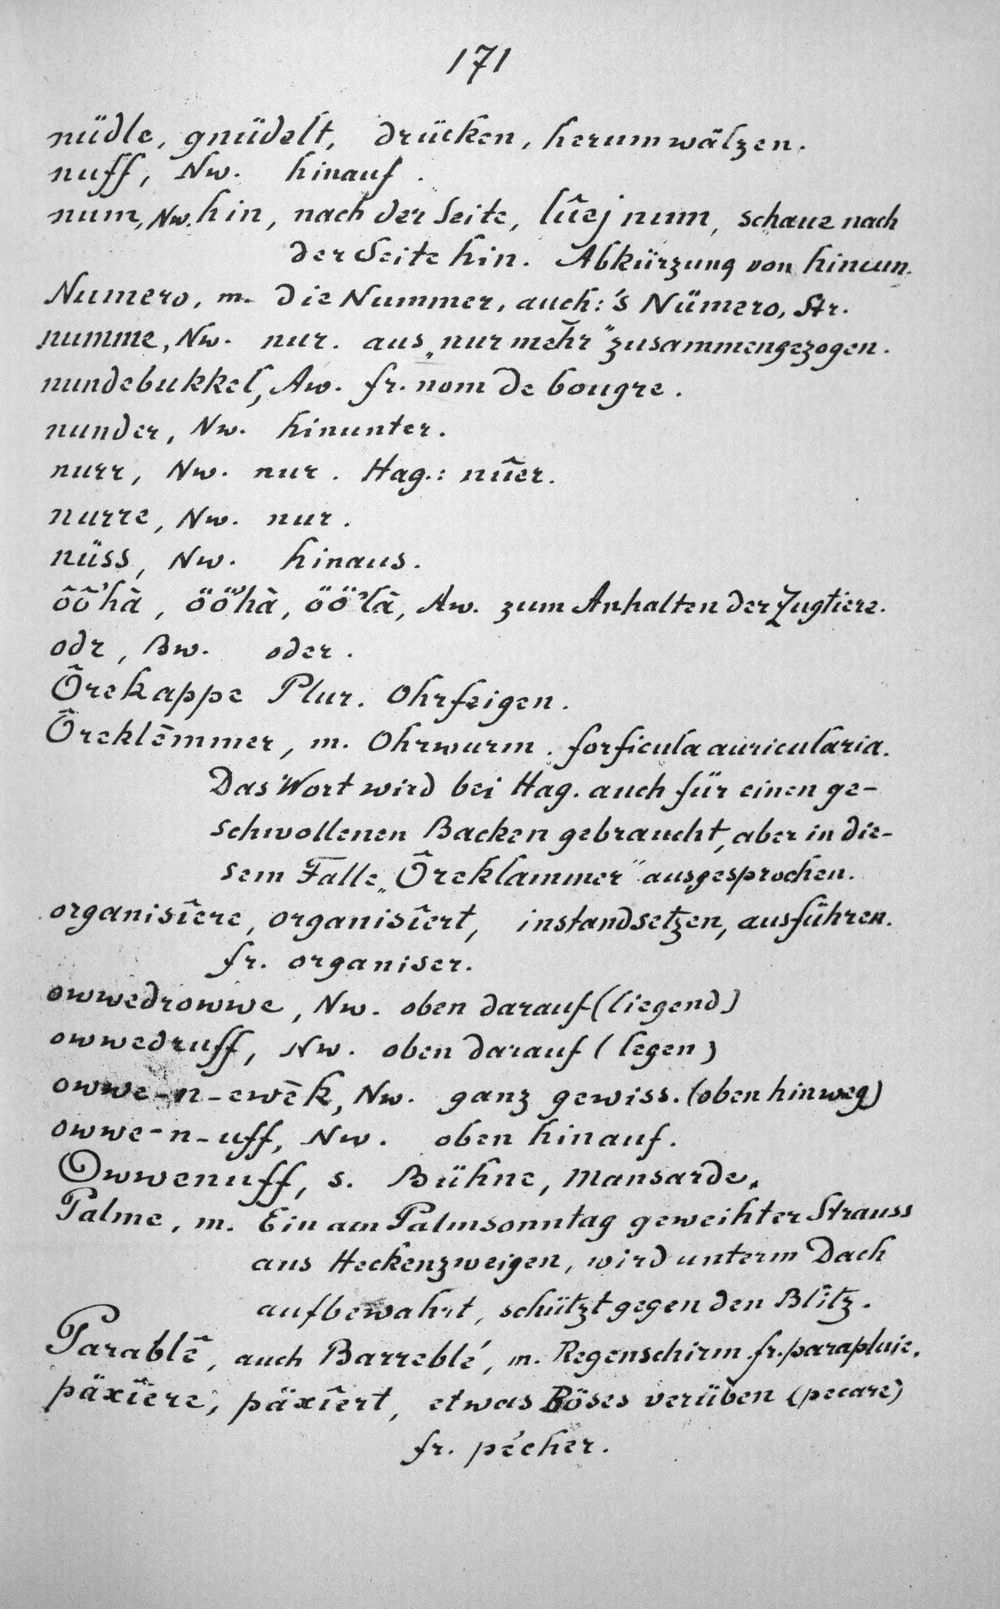 171
nüdle, gnüdelt, drücken, herumwälzen.
nuff, Nw. hinauf.
num, Nw. hin, nach der Seite, lûej num, schaue nach
der Seite hin. Abkürzung von hinum.
Numero, m. die Nummer, auch: 's Nümero, Str.
numme, Nw. nur. aus „nur mehr" zusammengezogen.
nundebukkel, Aw. fr. nom de bougre.
nunder, Nw. hinunter.
nurr, Nw. nur. Hag.: nûer.
nurre, Nw. nur.
nüss, Nw. hinaus.
ôô'hà, öö'hà, öö'là, Aw. zum Anhalten der Zugtiere.
odr, Bw. oder.
Ôrekappe Plur. Ohrfeigen.
Ôreklēmmer, m. Ohrwurm. forficula auricularia.
Das Wort wird bei Hag. auch für einen ge-
schwollenen Backen gebraucht, aber in die-
sem Falle „Ôreklammer" ausgesprochen.
organisîere, organisîert, instandsetzen, ausführen.
fr. organiser.
owwedrowwe, Nw. oben darauf (liegend)
owwedruff, Nw. oben darauf (legen)
owwe-n-ewēk, Nw. ganz gewiss. (oben hinweg)
owwe-n-uff, Nw. oben hinauf.
Owwenuff, s. Bühne, Mansarde.
Palme, m. Ein am Palmsonntag geweihter Strauss
aus Heckenzweigen, wird unterm Dach
aufbewahrt, schützt gegen den Blitz.
Parablê, auch Barreblé, m. Regenschirm fr. parapluie.
päxîere, päxîert, etwas Böses verüben (pecare)
fr. pécher.